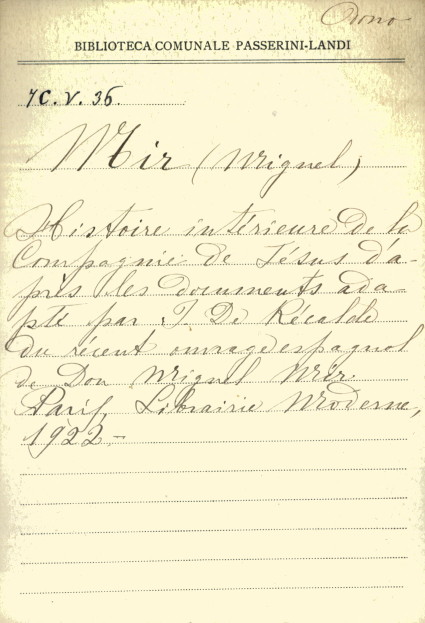 Dono
BIBLIOTECA COMUNALE PASSERINI-LANDI
7C.V.36.
Mir (Miguel)
Histoire intérieure de la
Compagnie de Jésus d'a-
près les documents ada-
pté par J. De Récalde
du récent ouvrage espagnol
de Don Miguel Mir.
Paris, Librairie Moderne,
1922-